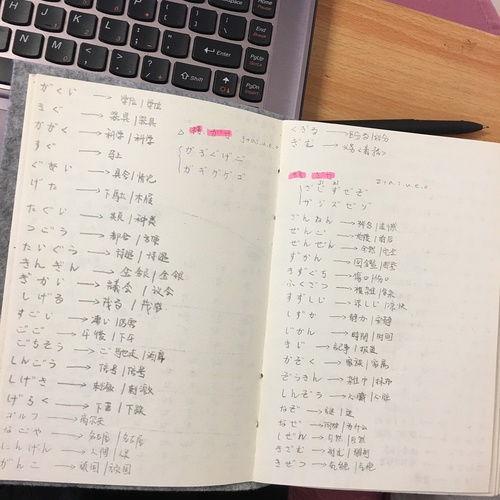 がくい → 学位 | 学位
きぐ → 器具 | 器具
かがく → 科学 | 科学
すぐ → 马上
ぐあい → 具合 | 情况
げた → 下駄 | 木屐
たぐい
つごう → 都合
たいぐう → 待遇 | 待遇
きんぎん → 金银 | 金银
ぎかい → 議会 | 议会
しげる → 茂る | 茂盛
すごい → 凄い | 厉害
ごご → 午後 | 下午
ごちそう → ご馳走
しんごう → 信号 | 信号
しげき → 刺激 | 刺激
げるく
ゴルフ → 高尔夫
なごや → 名古屋 | 名古屋
にんげん → 人間 | 人
がんこ → 頑固 | 顽固
がぎぐげご
ガギグゲゴ
くぎる → 区切る
ぎむ → 义务
ざじずぜぞ
ザジズゼゾ
ざんねん → 残念 | 遗憾
ぜんご → 前後 | 前后
ぜんぜん → 全然 | 完全
ずかん → 図鑑 | 图鉴
きずぐち → 傷口 | 伤口
ふくざつ → 複雑 | 复杂
すずしい → 涼しい | 凉快
しずか → 静か | 安静
じかん → 時間 | 时间
きじ → 記事 | 报道
かぞく → 家族 | 家属
ぞうきん → 雑巾 | 抹布
しんぞう → 心臓 | 心脏
なぞ → 謎 | 谜
なぜ → 何故 | 为什么
しぜん → 自然 | 自然
きざむ → 刻む
きぜつ → 気絶
Enter
Shift
PgUp
PgDn
End
Break
Home
Pause
Insert